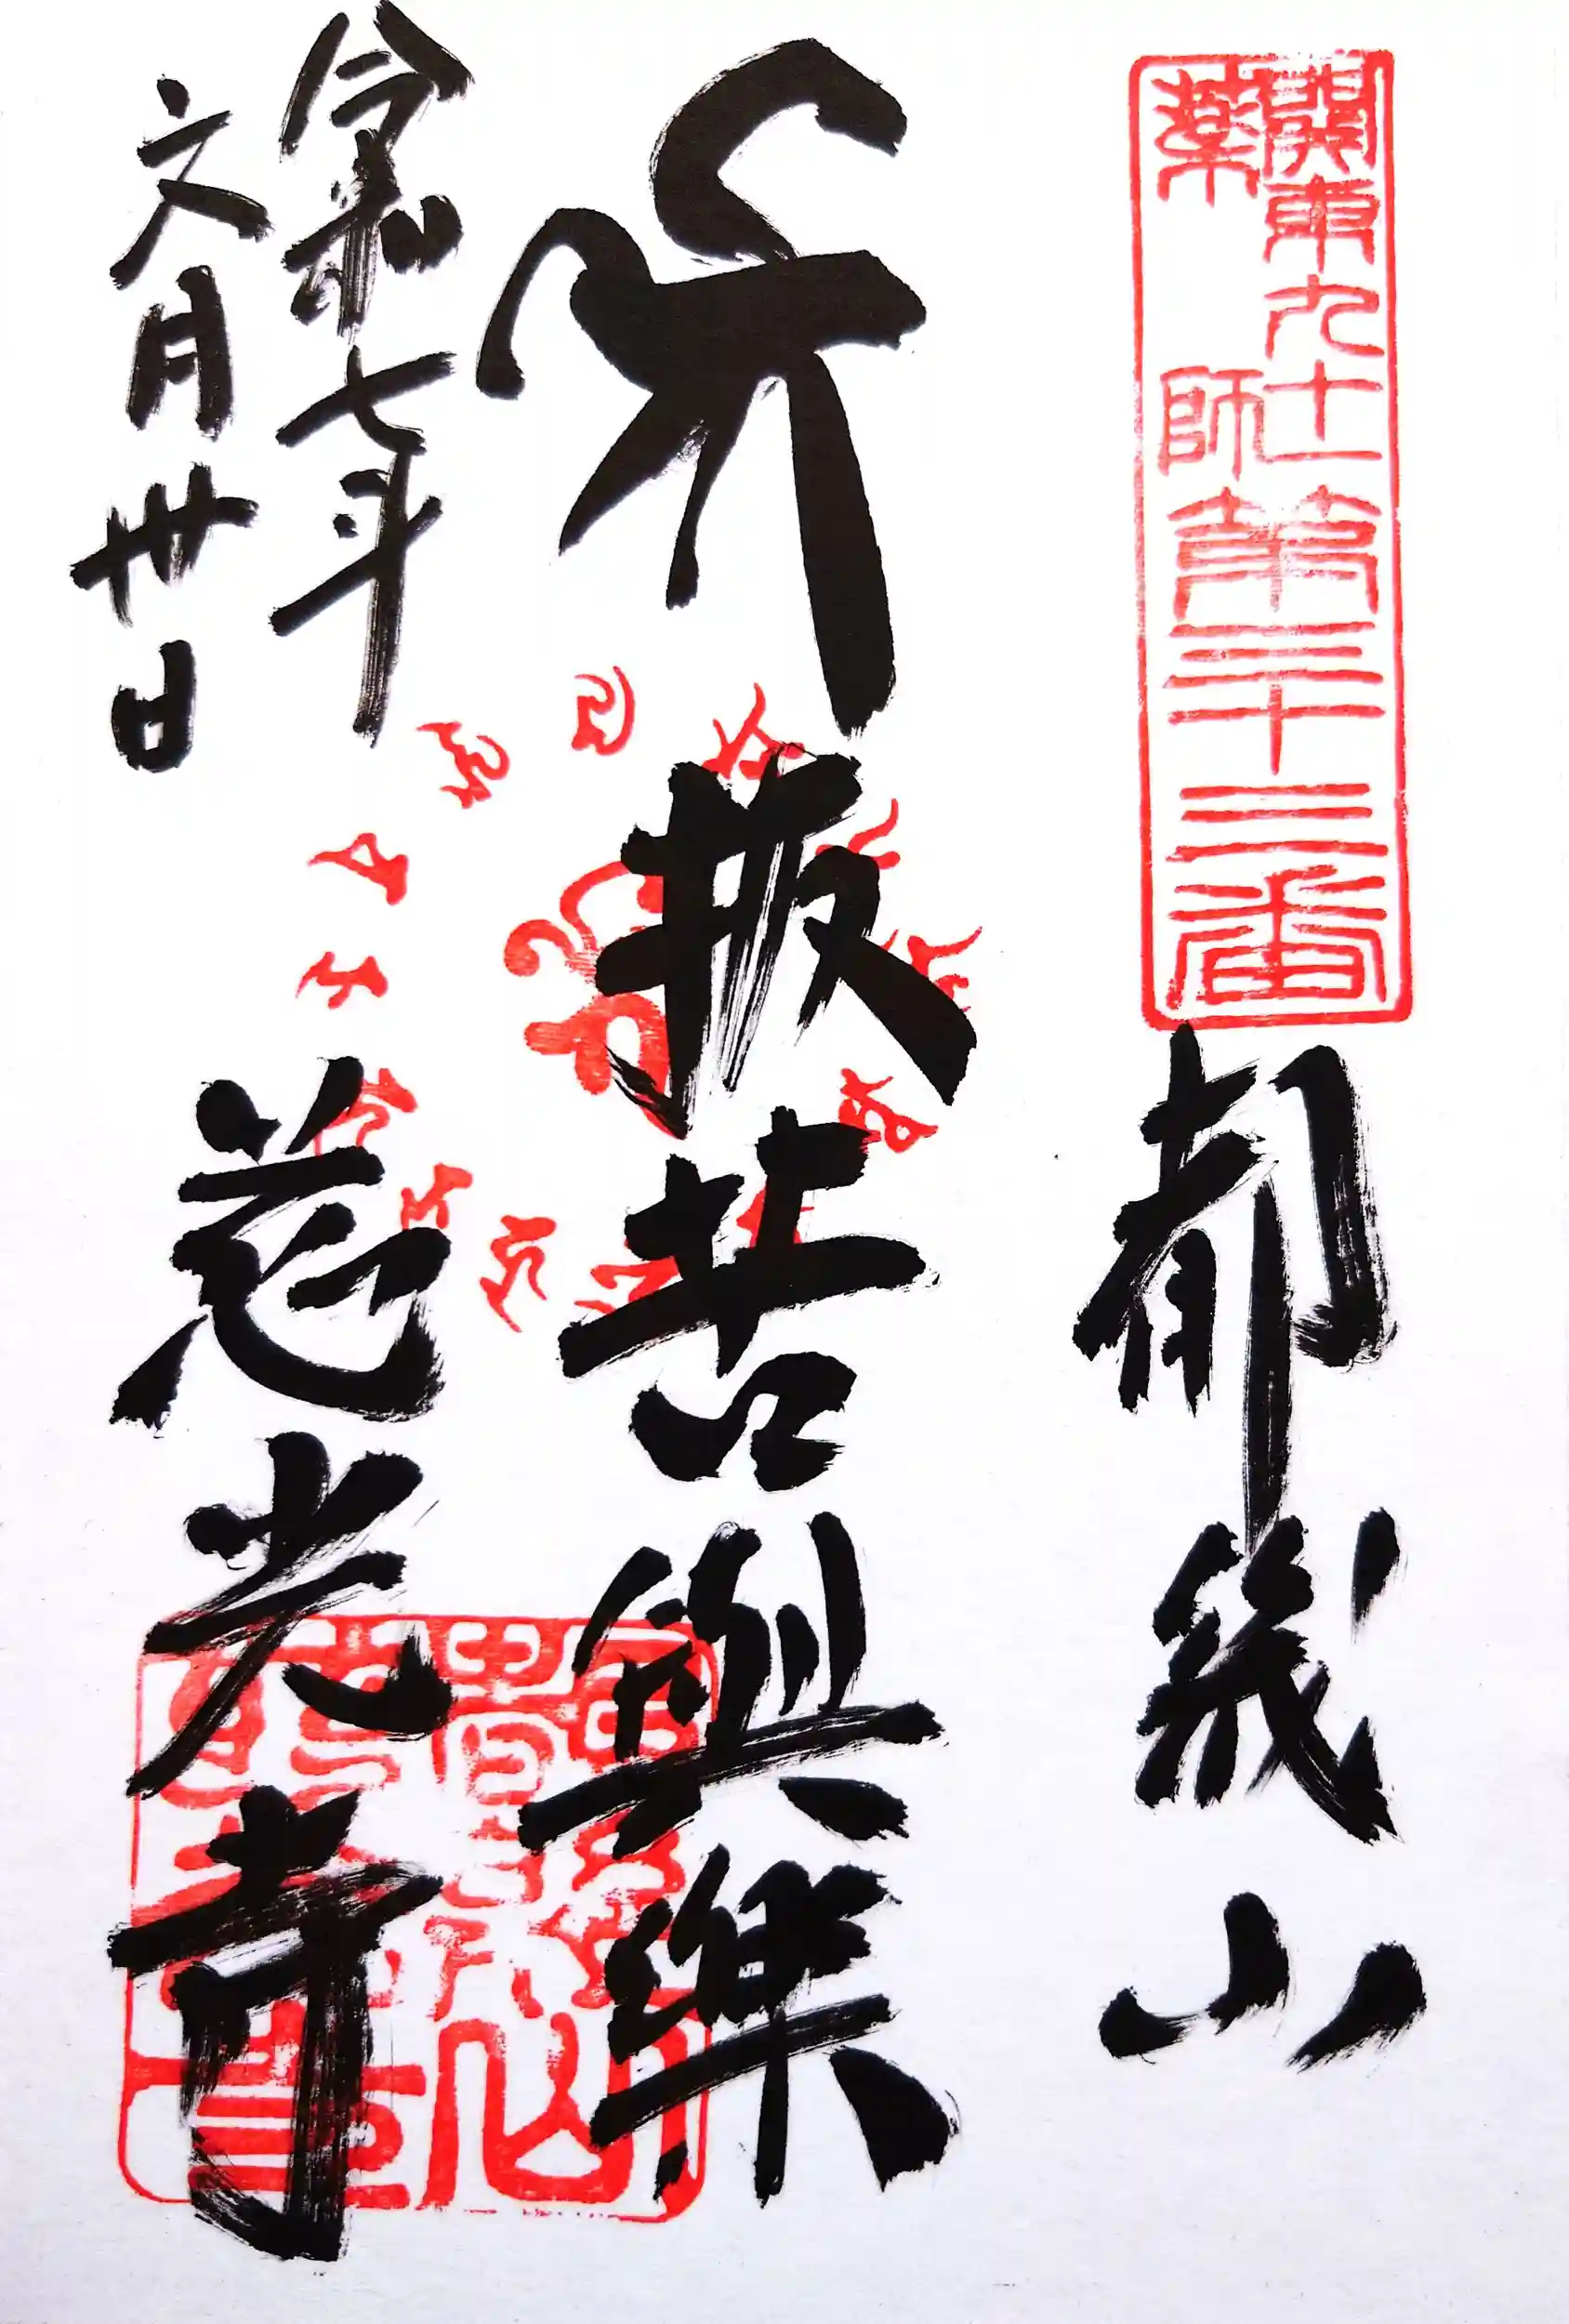 關東九十一
薬師
第三十三番
都幾山
抜苦與樂
令和七年
文月卅日
慈光寺